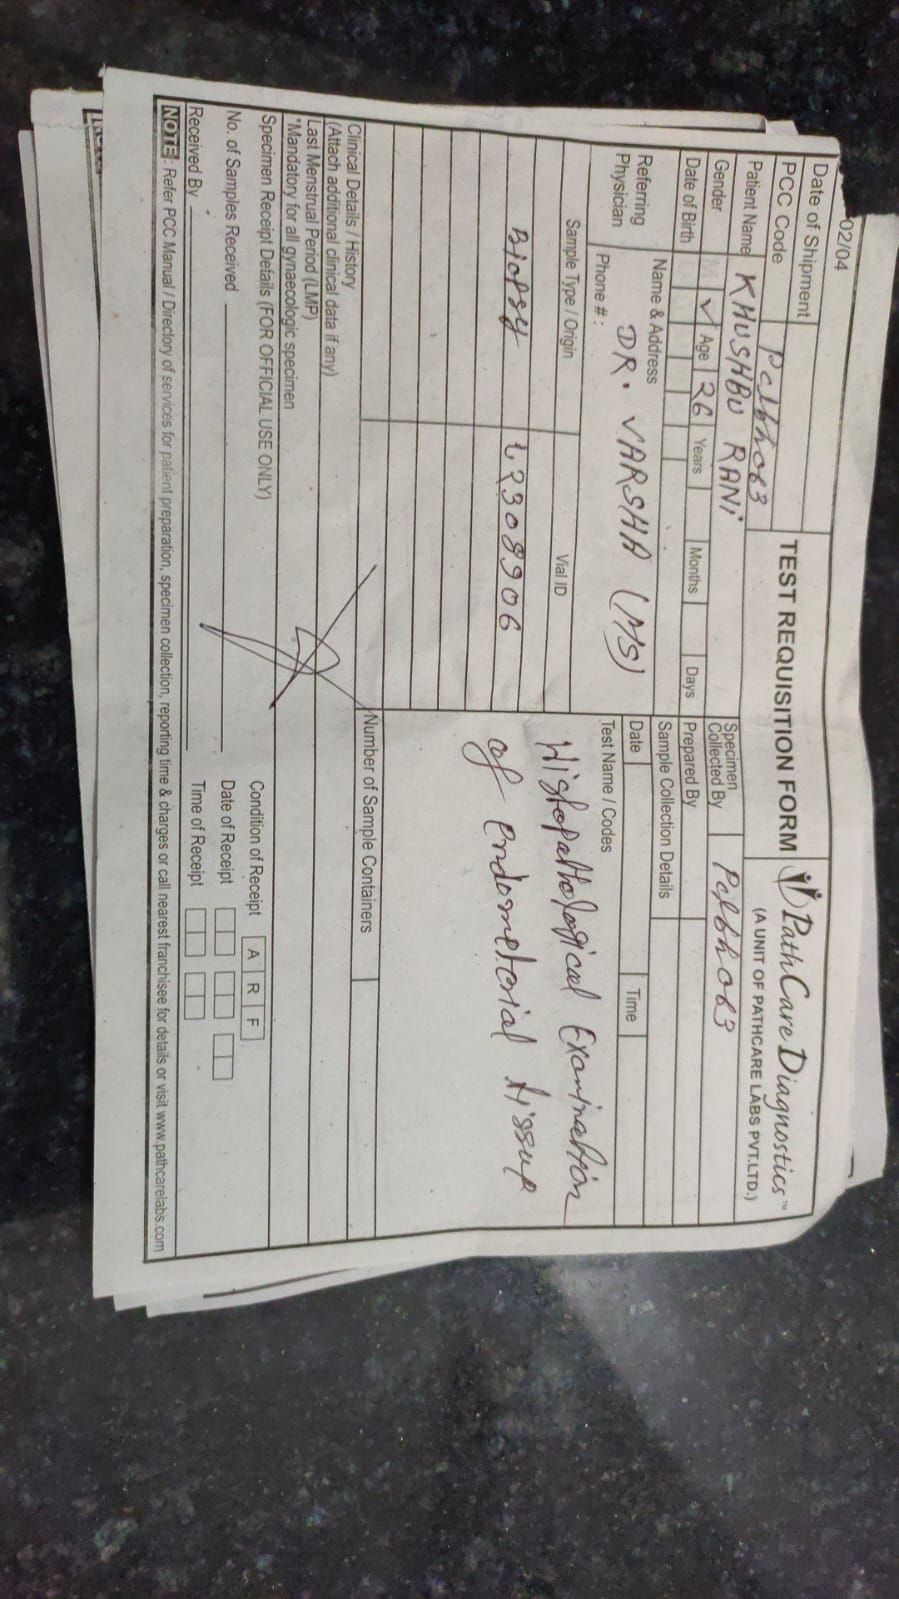 02/04
Date of Shipment
TEST REQUISITION FORM
PathCare Diagnostics™
(A UNIT OF PATHCARE LABS PVT.LTD.)
PCC Code
Patient Name KHUSHBU RANI
Gender ✓ Age 26 Years Months Days
Date of Birth
Specimen Collected By
Prepared By
Referring Physician
Name & Address
DR. VARSHA (MS)
Phone # :
Sample Collection Details
Date Time
Sample Type / Origin Vial ID Test Name / Codes
Biopsy 2308906
Histopathological Examination
of endometorial tissue
Number of Sample Containers
Clinical Details / History
(Attach additional clinical data if any)
Last Menstrual Period (LMP)
*Mandatory for all gynaecologic specimen
Specimen Receipt Details (FOR OFFICIAL USE ONLY)
Condition of Receipt A R F
No. of Samples Received
Date of Receipt
Received By
Time of Receipt
NOTE : Refer PCC Manual / Directory of services for patient preparation, specimen collection, reporting time & charges or call nearest franchisee for details or visit www.pathcarelabs.com